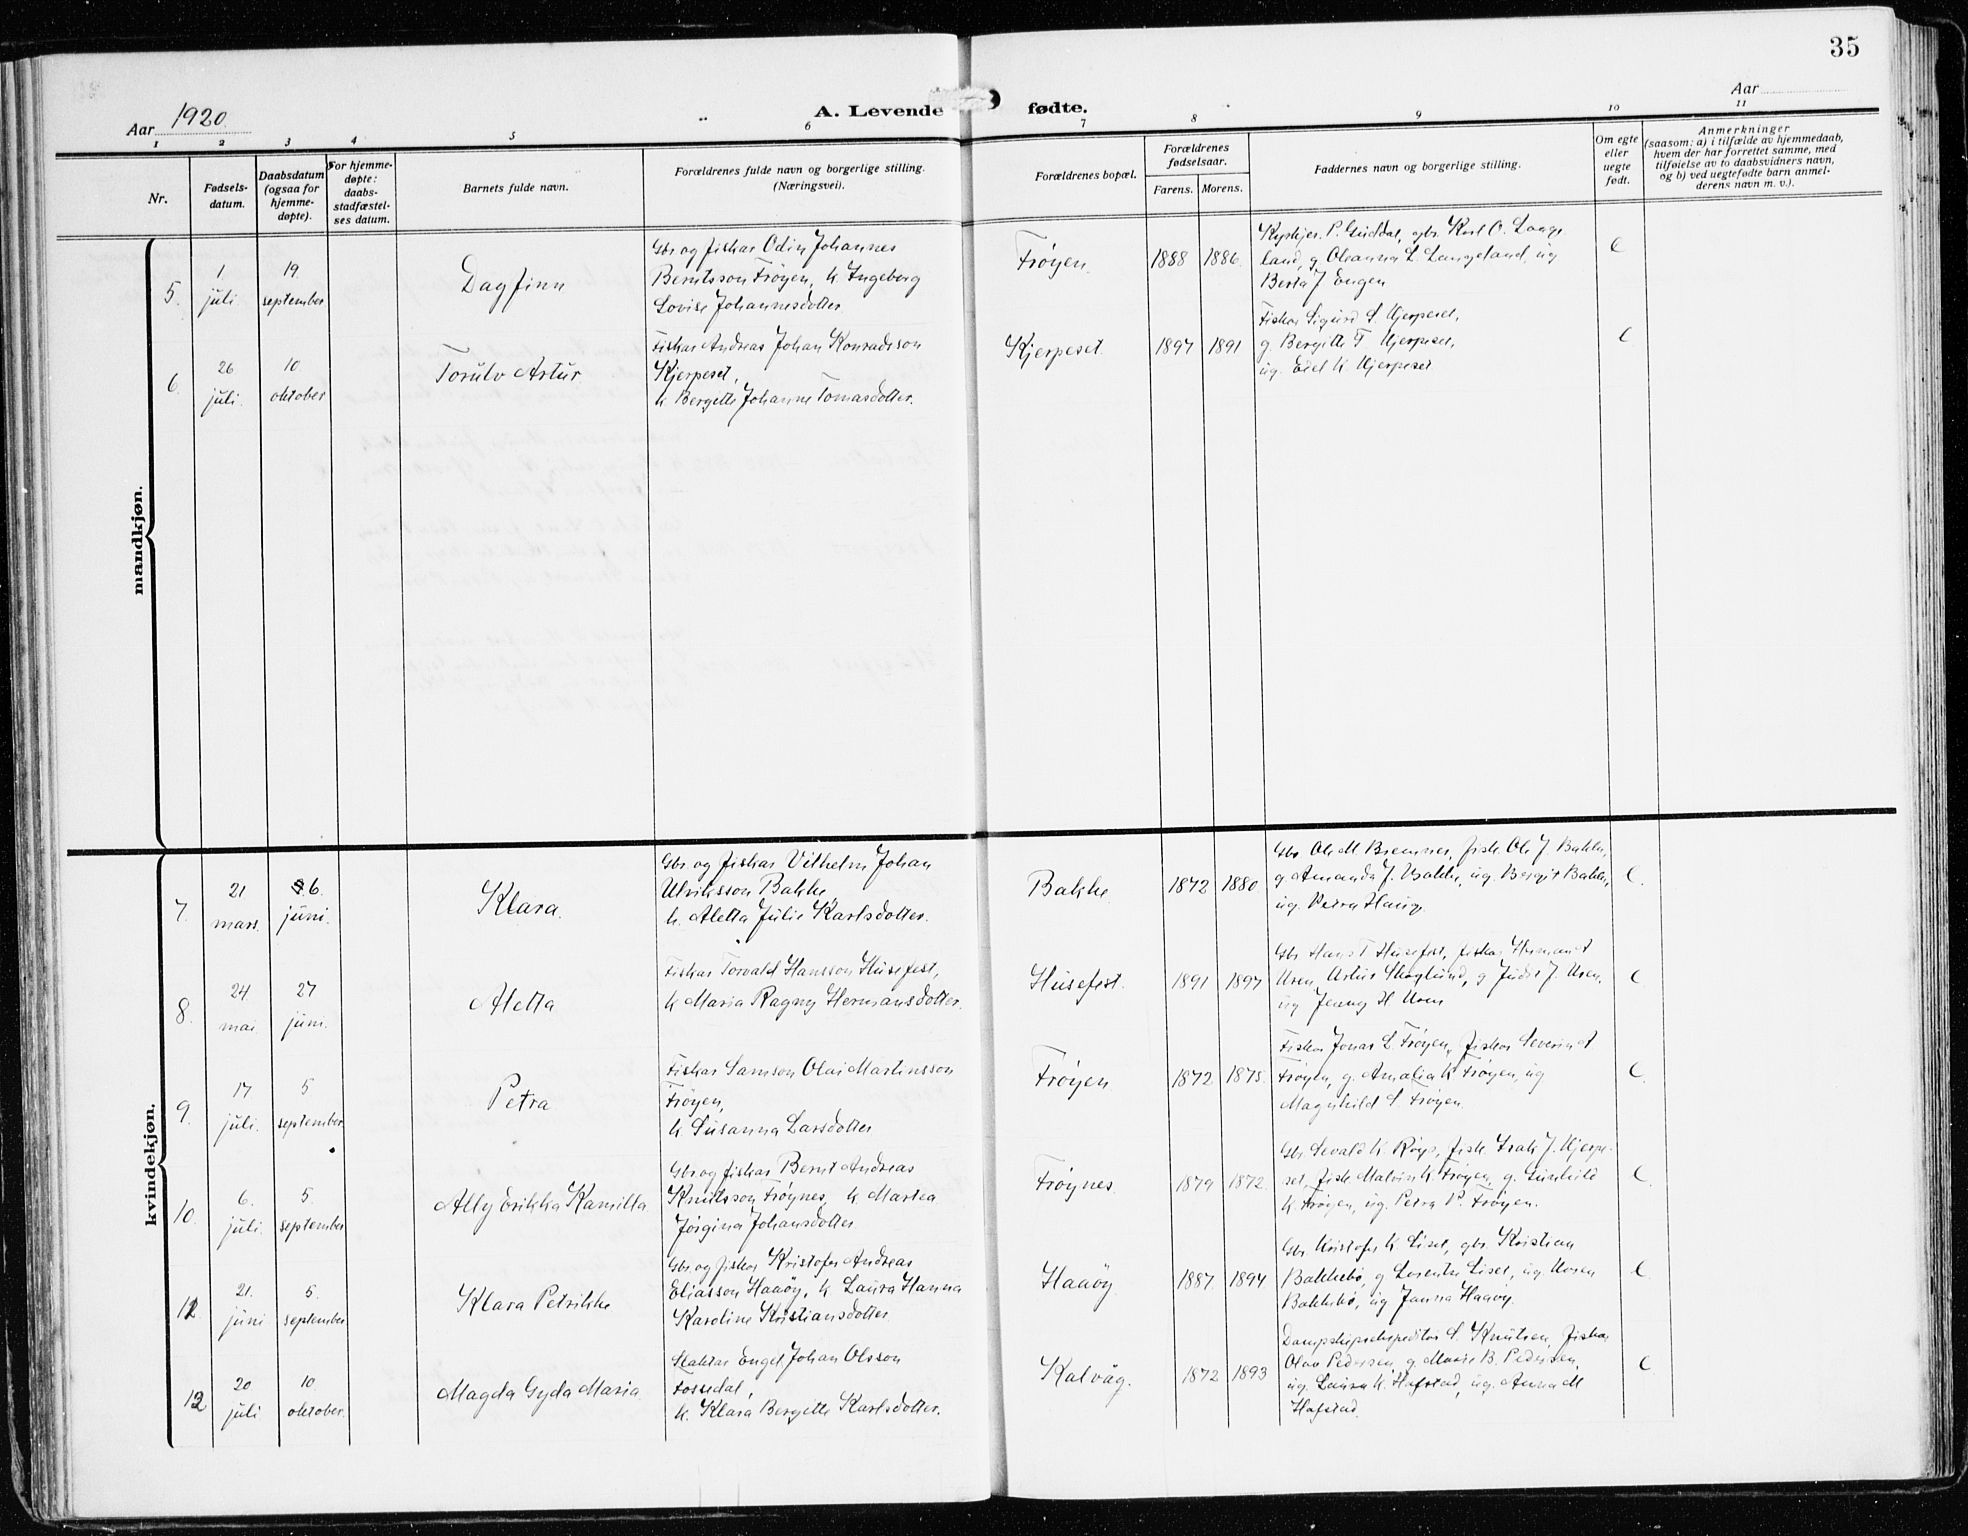 35
Aar 1920.
A. Levende fødte.
Aar
1 2 3 4 5 6 7 8 9 10 11
Nr.
Fødsels-
datum.
Daabsdatum
(ogsaa for
hjemme-
døpte).
For hjemme-
døpte:
daabs-
stadfæstel-
ses datum.
Barnets fulde navn.
Forældrenes fulde navn og borgerlige stilling.
(Næringsvei).
Forældrenes bopæl.
Forældrenes
fødselsaar.
Farens. Morens.
Faddernes navn og borgerlige stilling.
Om egte
eller
uegte
født.
Anmerkninger
(saasom: a) i tilfælde av hjemmedaab,
hvem der har forrettet samme, med
tilføielse av to daabsvidners navn,
og b) ved uegtefødte barn anmel-
derens navn m. v.).
mandkjøn.
5.
1.
juli.
19.
september
Dagfinn
Gbr og fiskar Odin Johannes
Berntsson Frøyen, k Ingeborg
Lovise Johannesdotter
Frøyen.
1888
1886.
P. Guddal, gbr. Karl O. Lange
land, g Oleanna L. Langeland, ug
Berta J Engen
e
6.
26
juli.
10.
oktober
Torulv Artur
Fiskar Andreas Johan Konradsson
Kjerpeset,
k Bergette Johanne Tomasdotter.
Kjerpeset
1897
1891
Fiskar Sigurd S. Kjerpeset,
g. Bergitte T Kjerpeset,
ug. Edel K. Kjerpeset
e
kvindekjøn.
7.
21
mars.
6.
juni.
Klara.
Gbr og fiskar Vilhelm Johan
Ulriksson Bakke,
k. Aletta Julie Karlsdotter.
Bakke
1872
1880
Gbr Ole M. Bremnes, fisk. Ole J. Bakke,
g Amanda J. Bakke, ug. Bergit Bakke,
ug. Petra Haug.
e.
8.
24
mai
27
juni.
Aletta
Fiskar Torvald Hansson Husefest,
k Maria Ragny Hermansdotter.
Husefest.
1891
1897
Gbr Hans T Husefest, fiskar Herman A
Uren, Artur Skoglund, g Judit J. Uren,
ug Jenny H Uren
e
9.
17
juli.
5
september
Petra
Fiskar Samson Olai Martinsson
Frøyen,
k. Susanna Larsdotter
Frøyen
1872
1875.
Fiskar Jonas L. Frøyen, fiskar Severin A
Frøyen, g. Amalia K Frøyen, ug
Magnhild S. Frøyen.
e.
10.
6.
juli.
5.
september
Ally Erikka Kamilla
Gbr og fiskar Bernt Andreas
Knutsson Frøynes, k Martea
Jørgina Johansdotter
Frøynes.
1879
1872.
Gbr Sevald K. Røys, fisk. Isak J. Kjerpe-
set, fisk Malvin K. Frøyen, g. Gunhild
K. Frøyen, ug. Petra P. Frøyen.
e.
11.
21.
juni
5.
september
Klara Petrikke
Gbr og fiskar Kristofer Andreas
Eliasson Haaøy, k Laura Hanna
Karoline Kristiansdotter
Haaøy
1887.
1894
Gbr Kristofer K. Liset, gbr. Kristian
Bakkebø, g Lorentse Liset, ug.
Bakkebø, ug Janna Haaøy.
e
12
20
juli
10.
oktober.
Magda Gyda Maria
Engel Johan Olsson
Fossedal,
k. Klara Bergette Karlsdotter.
Kalvåg.
1872
1893
Dampskipsekspeditør S. Knutsen, fiskar
Olav Pedersen, g. Marie B. Pedersen,
ug. Laura K. Hafstad, ug. Anna M
Hafstad.
e.